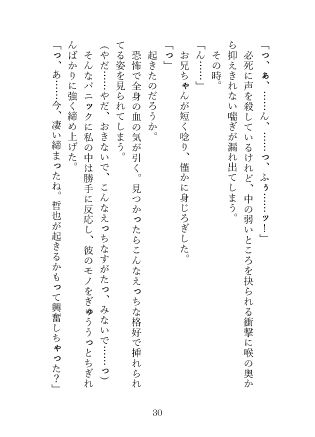 「っ、ぁ、……ん、……っ、ふぅ……ッ！」
必死に声を殺しているけれど、中の弱いところを抉られる衝撃に喉の奥か
ら抑えきれない喘ぎが漏れ出てしまう。
その時。
「ん……」
お兄ちゃんが短く唸り、僅かに身じろぎした。
「っ」
起きたのだろうか。
恐怖で全身の血の気が引く。見つかったらこんなえっちな格好で挿れられ
てる姿を見られてしまう。
（やだ……やだ、おきないで、こんなえっちなすがた、みないで……っ）
そんなパニックに私の中は勝手に反応し、彼のモノをぎゅううっとちぎれ
んばかりに強く締め上げた。
「っ、あ……今、凄い締まったね。哲也が起きるかもって興奮しちゃった？」
30